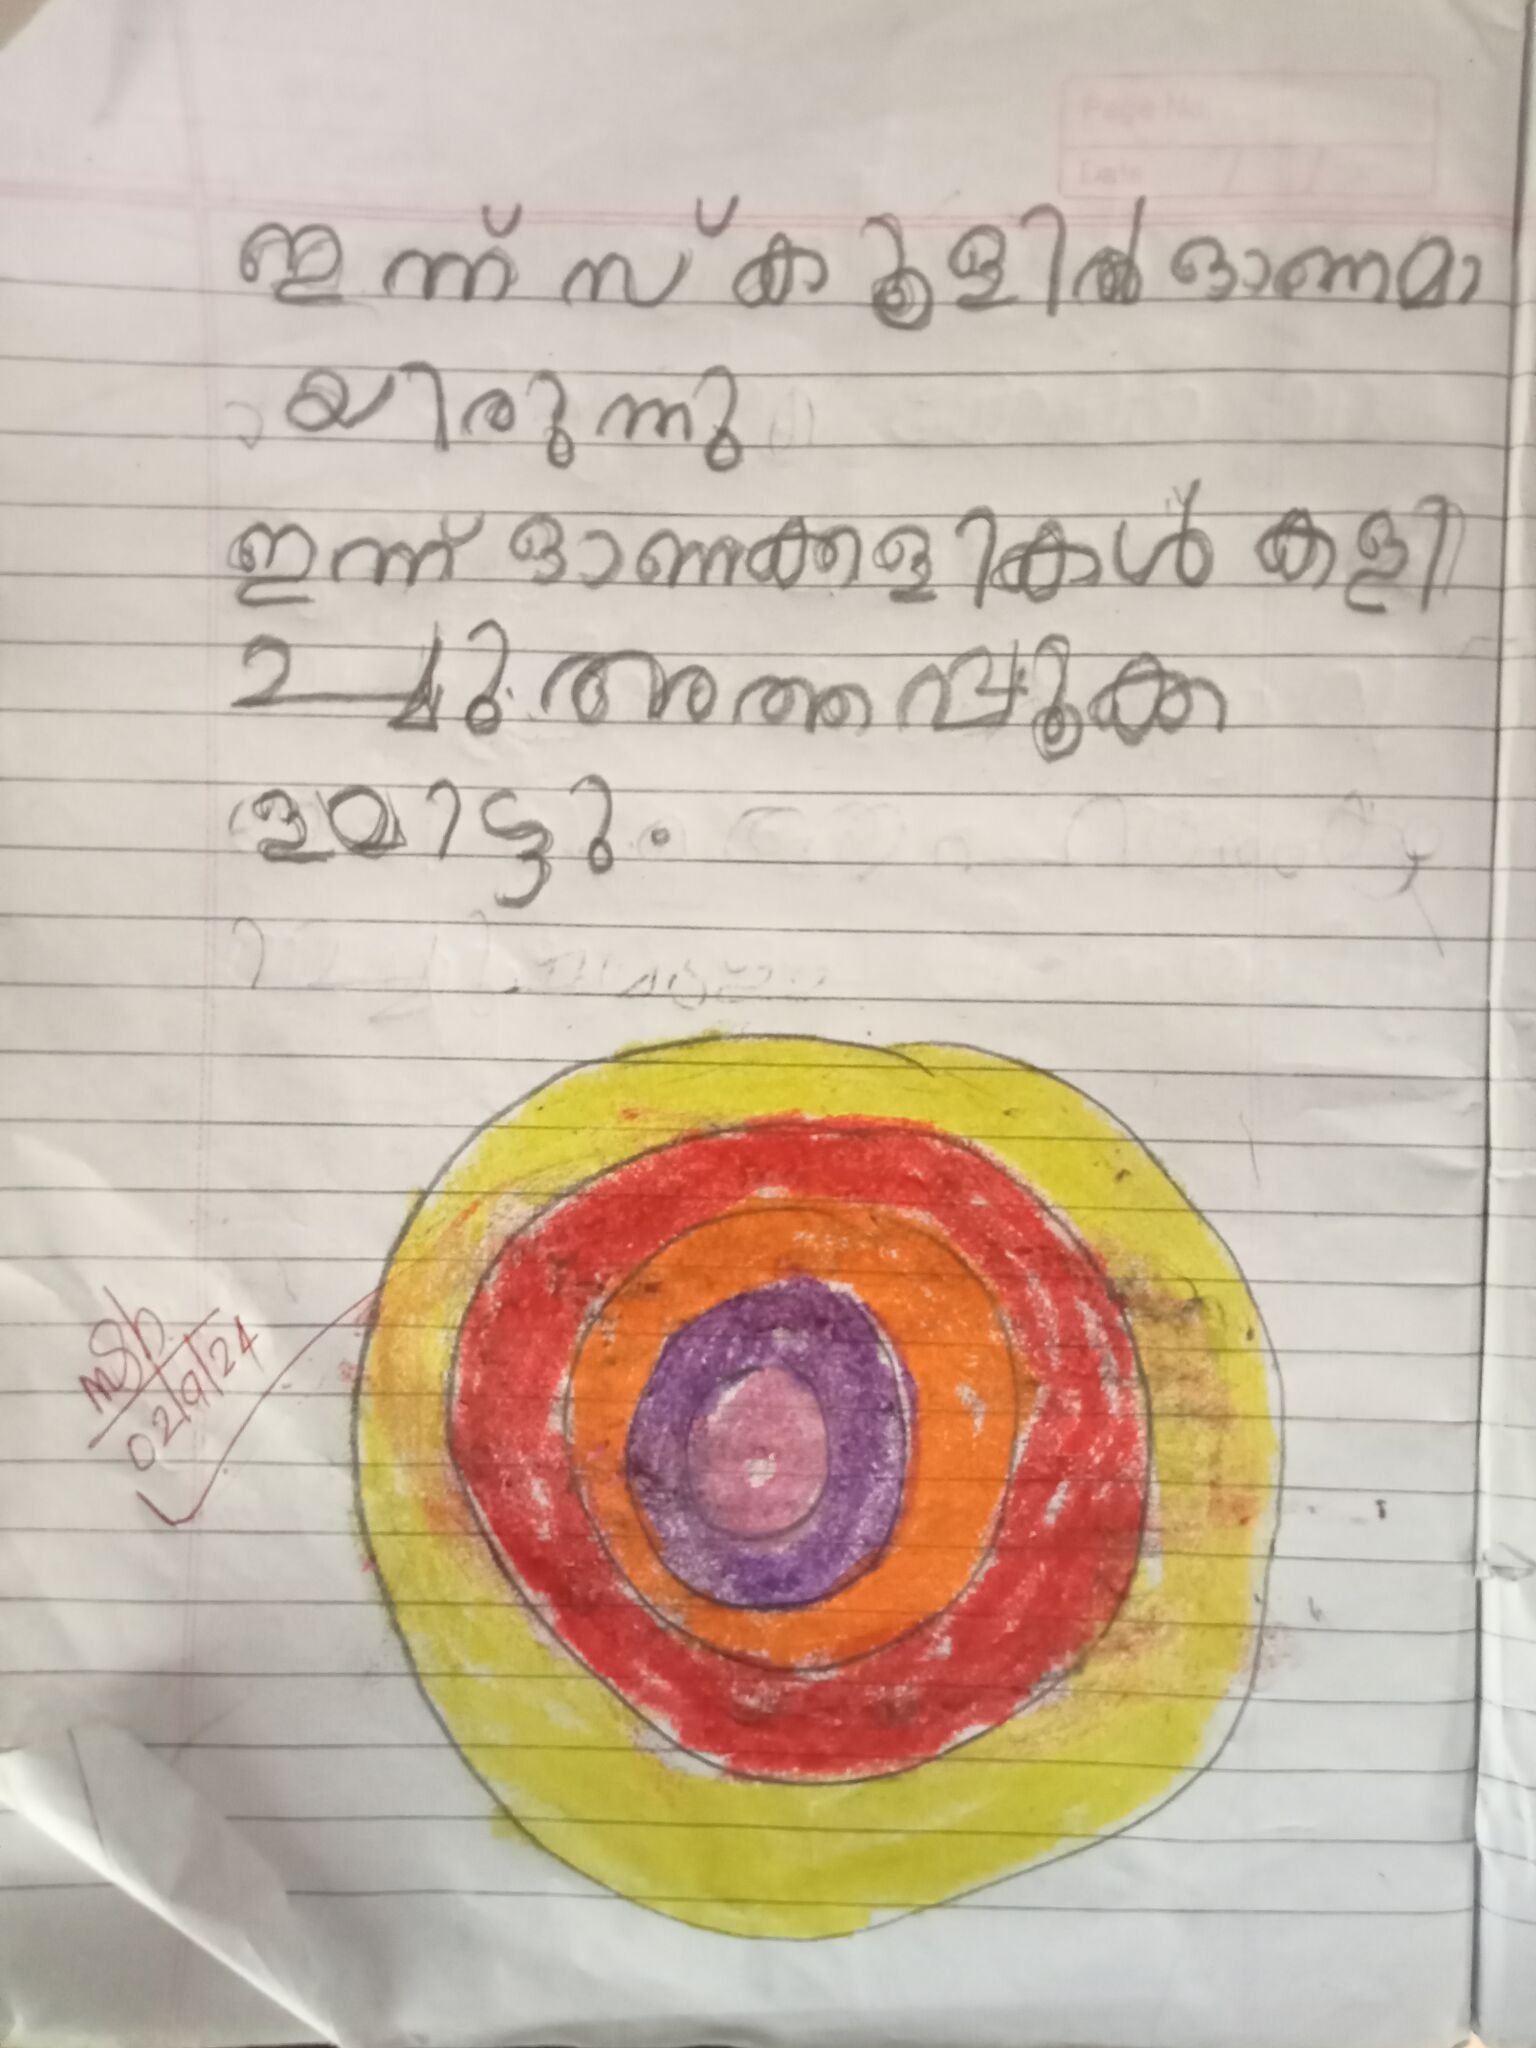 Page No.
Date
ഇന്ന് സ്കൂളിൽ ഓണമാ
യിരുന്നു
ഇന്ന് ഓണക്കളികൾ കളി
ച്ചു അത്തപ്പൂക്ക
ളമിട്ടു.
02/9/24